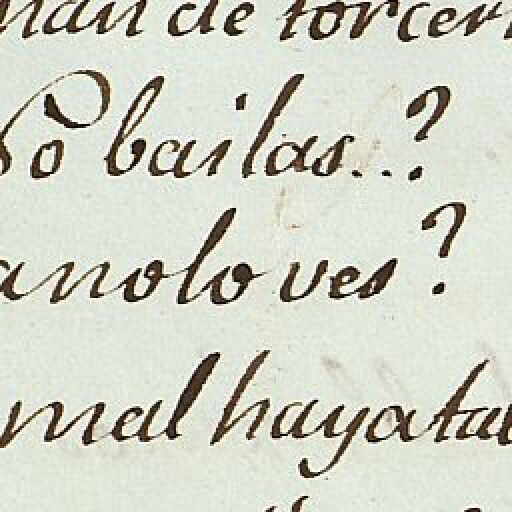 man de torcer
Pō bailas...?
anolo ves?
mal haya tal